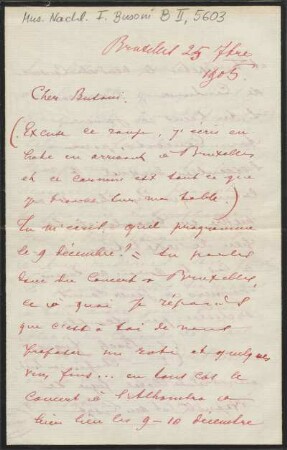 Mus. Nachl. F. Busoni B II, 5603
Bruxelles 25 7bre
1905.
Cher Busoni.
(Excuse ce rouge, j'écris en
hâte en arrivant à Bruxelles
et ce carmin est tout ce que
je trouve sur ma table.)
Tu m'écris, quel programme
le 9 décembre? – tu parles
donc du Concert à Bruxelles,
ce à quoi je répondrai
que c'est à toi de nous
proposer un et quelques
... en tout cas le
Concert à l'Alhambra a
bien lieu les 9–10 décembre